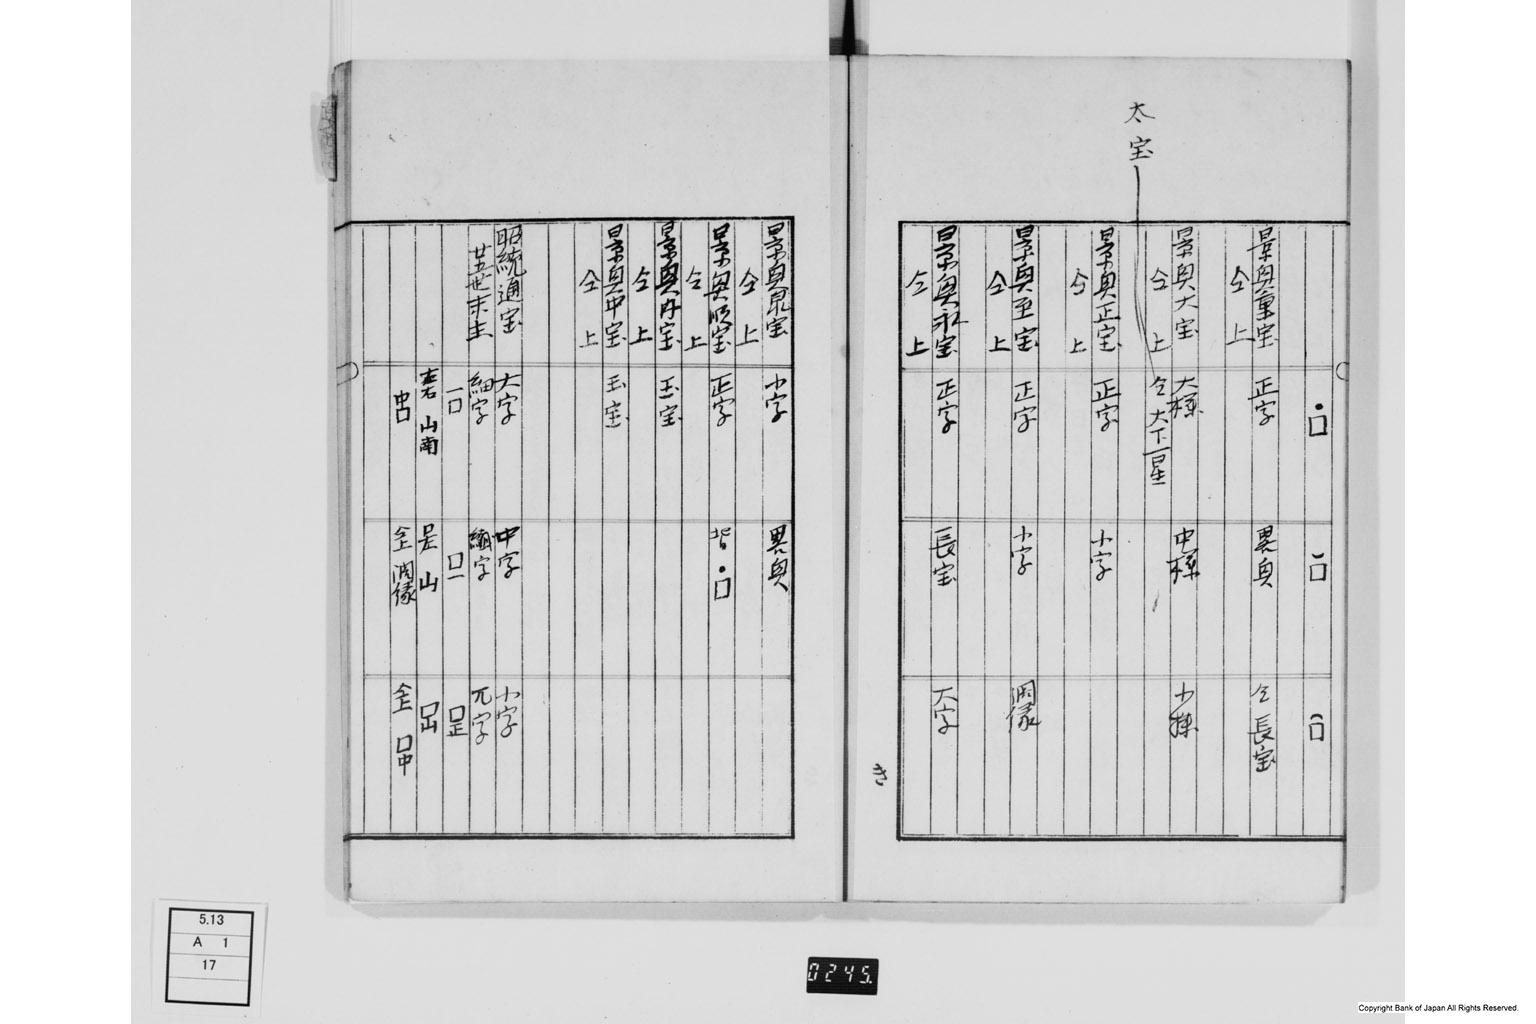 太宝
・口
一口
口
景奥重宝
仝上
正字
異奥
仝長宝
景奥大宝
仝上
大様
仝大下一星
中様
小様
景奥正宝
仝上
正字
小字
景奥至宝
仝上
正字
小字
濶縁
景奥永宝
仝上
正字
長宝
大字
き
景奥泉宝
仝上
小字
異奥
景奥順宝
仝上
正字
背・口
景奥内宝
仝上
玉宝
景奥中宝
仝上
玉宝
昭統通宝
廿五世末主
大字
中字
小字
細字
繍字
兀字
一口
口一
口正
山南
是山
口出
中口
仝濶縁
仝口中
5.13
A 1
17
0245.
Copyright Bank of Japan All Rights Reserved.